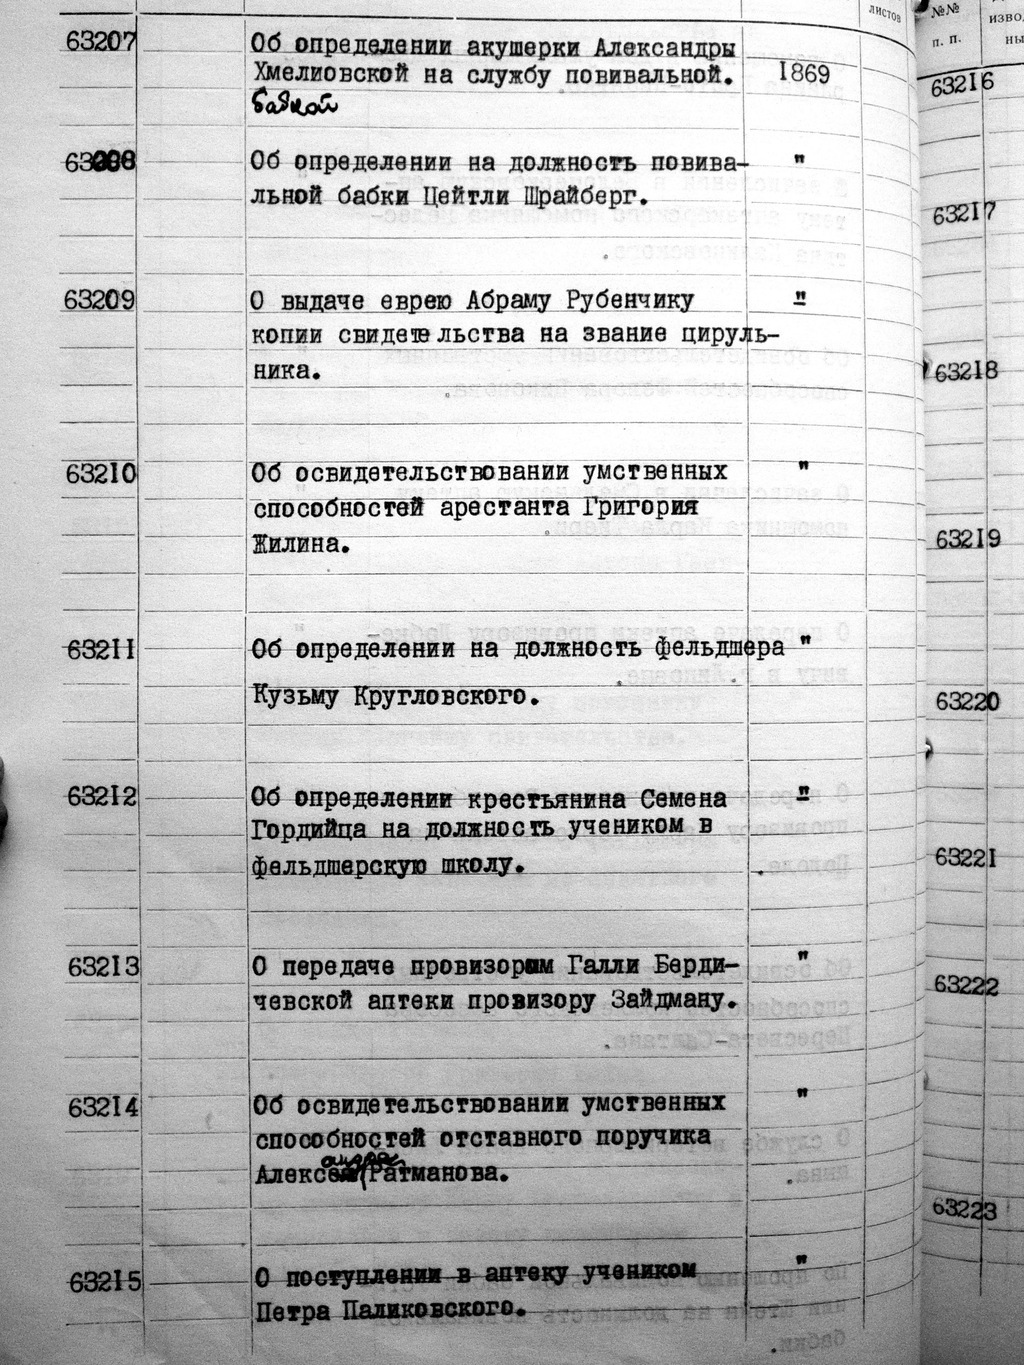 листов
63207
Об определении акушерки Александры
Хмелиовской на службу повивальной. 1869
бабкой
63208 Об определении на должность повива- "
льной бабки Цейтли Шрайберг.
63209 О выдаче еврею Абраму Рубенчику "
копии свидетельства на звание цируль-
ника.
63210 Об освидетельствовании умственных "
способностей арестанта Григория
Жилина.
63211 Об определении на должность фельдшера "
Кузьму Кругловского.
63212 Об определении крестьянина Семена "
Гордийца на должность учеником в
фельдшерскую школу.
63213 О передаче провизором Галли Берди- "
чевской аптеки провизору Зайдману.
63214 Об освидетельствовании умственных "
способностей отставного поручика
Алексея Ратманова.
63215 О поступлении в аптеку учеником "
Петра Паликовского.
№№
п. п.
изво
ны
63216
63217
63218
63219
63220
63221
63222
63223